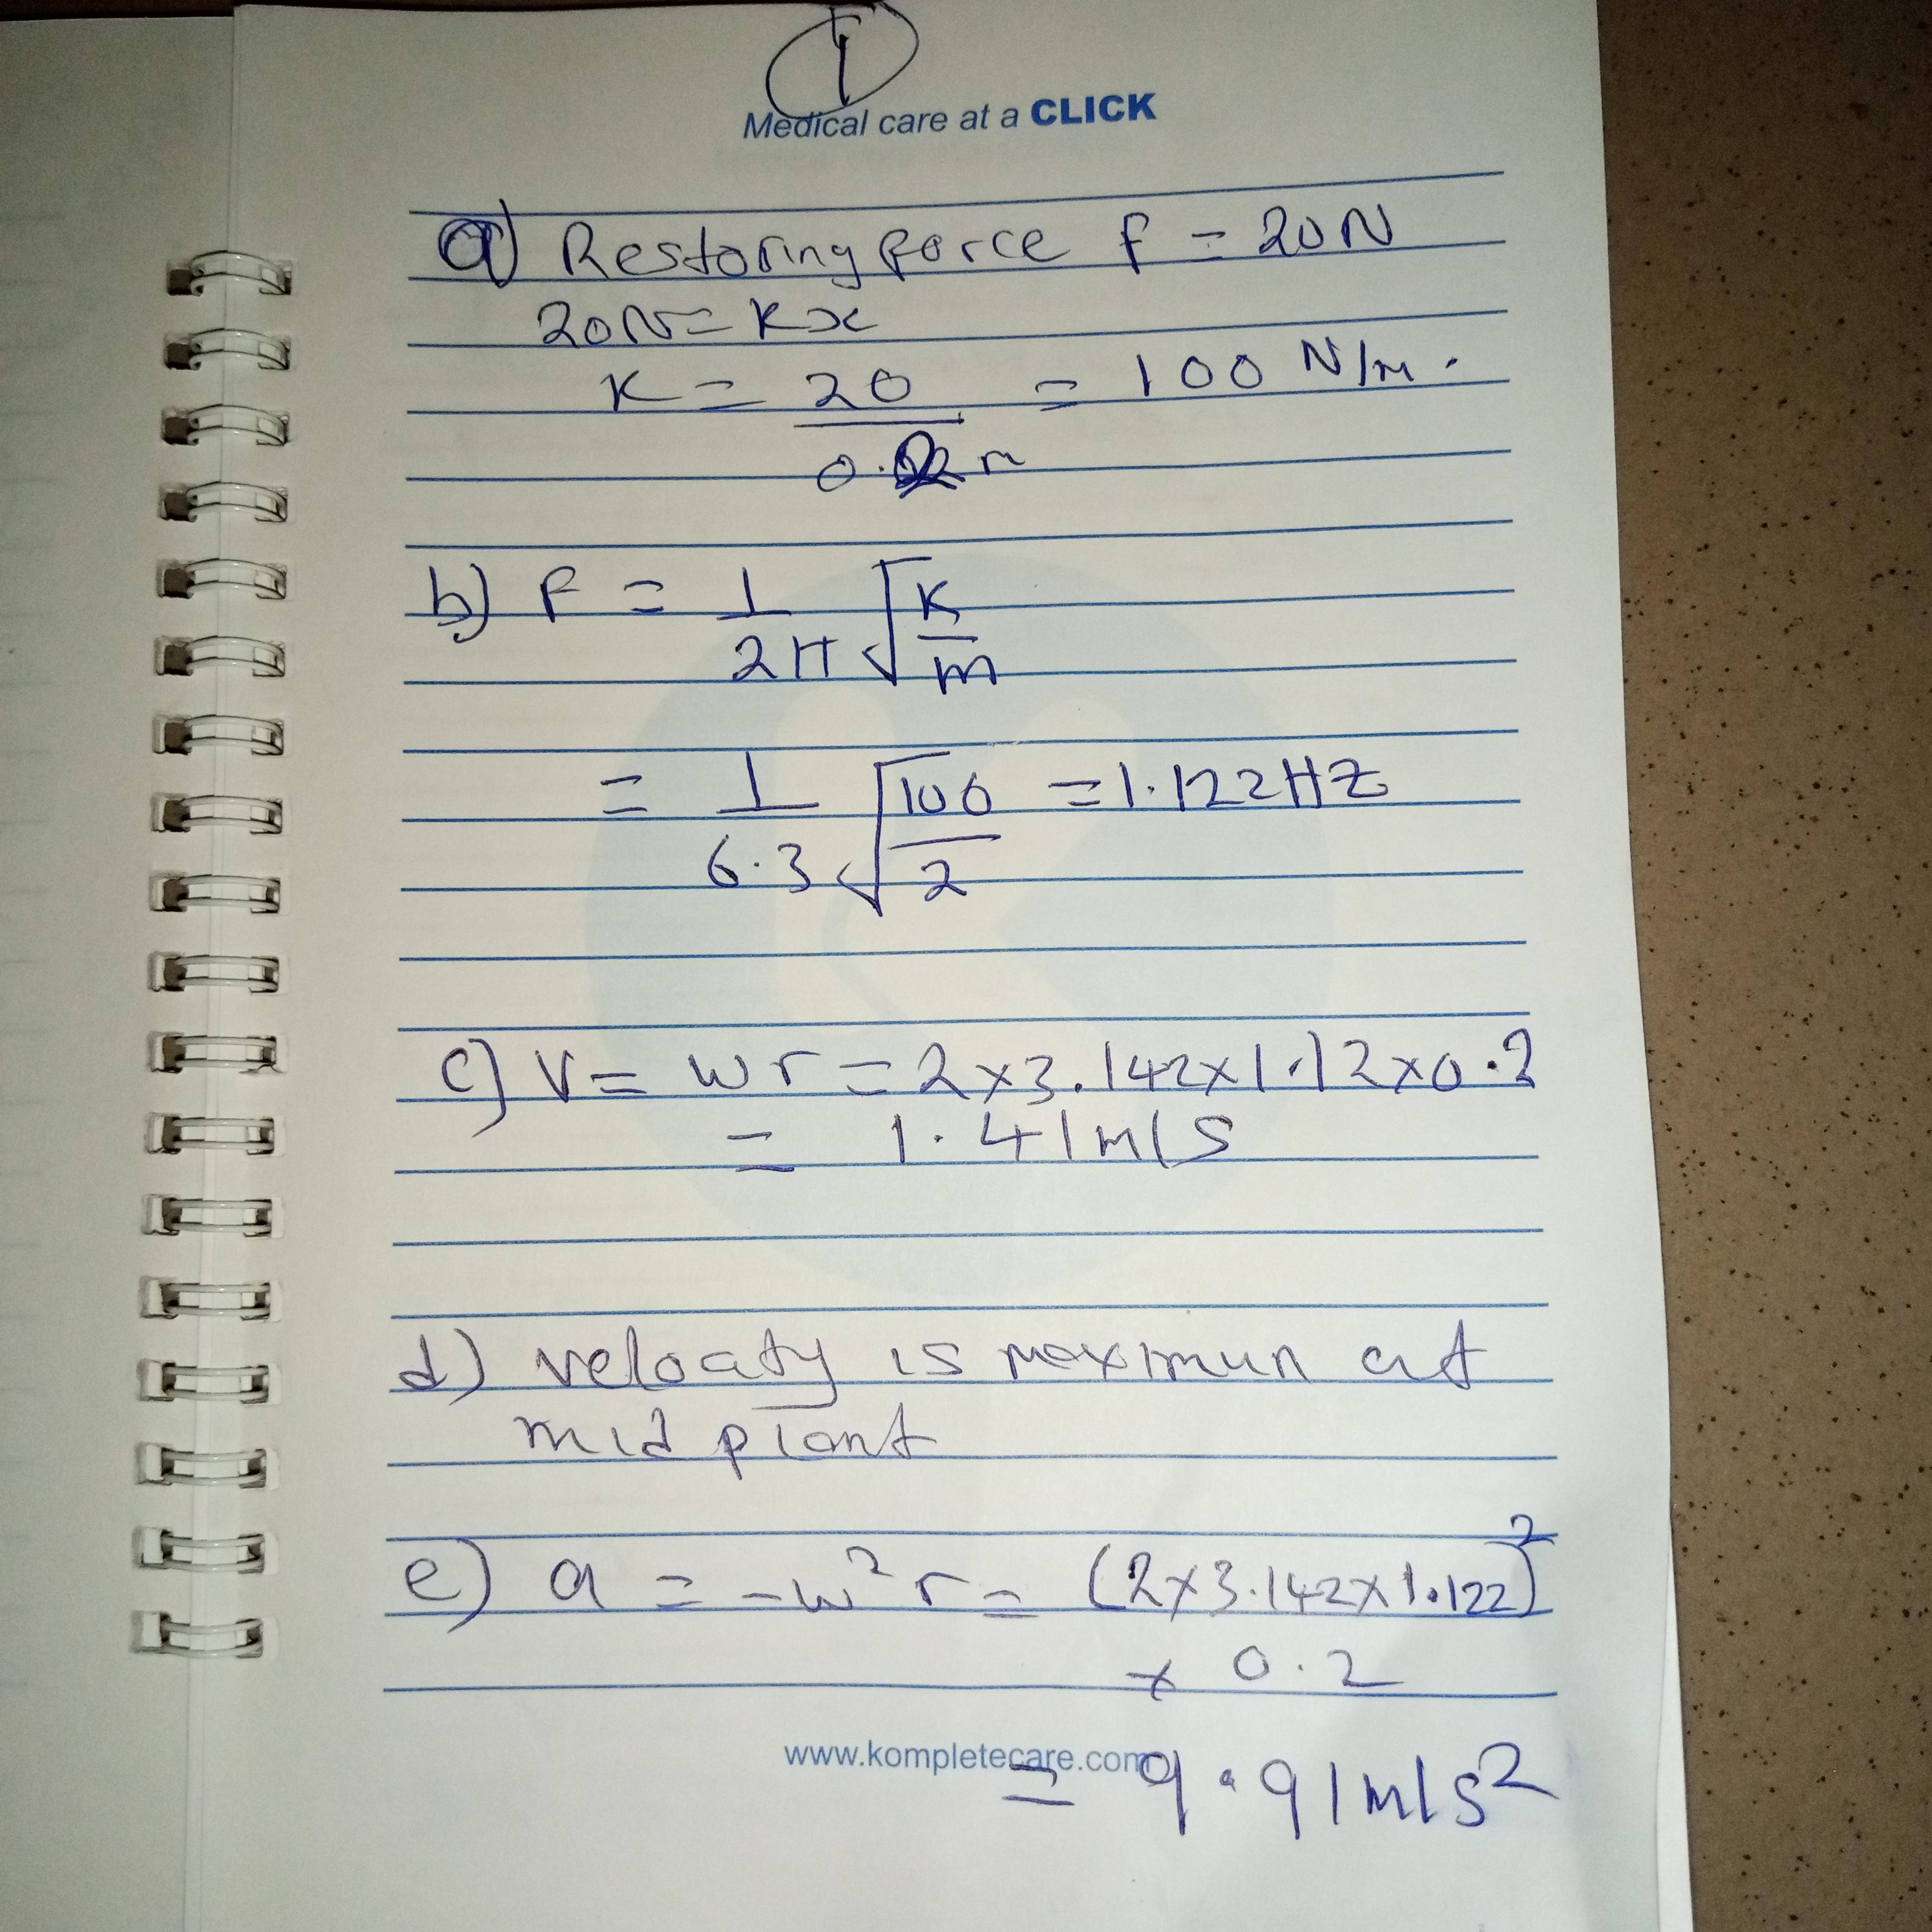 1
Medical care at a CLICK
a) Restoring force f = 20N
20N = Kx
K = 20/0.2m = 100 N/m.
b) F = 1/2π √K/m
= 1/6.3 √100/2 = 1.122HZ
c) V = wr = 2x3.142x1.12x0.2
= 1.41m/s
d) velocity is maximun at
mid piont
e) a = -w²r = (2x3.142x1.122)²
x 0.2
www.kompletecare.com
= 9.91m/s²